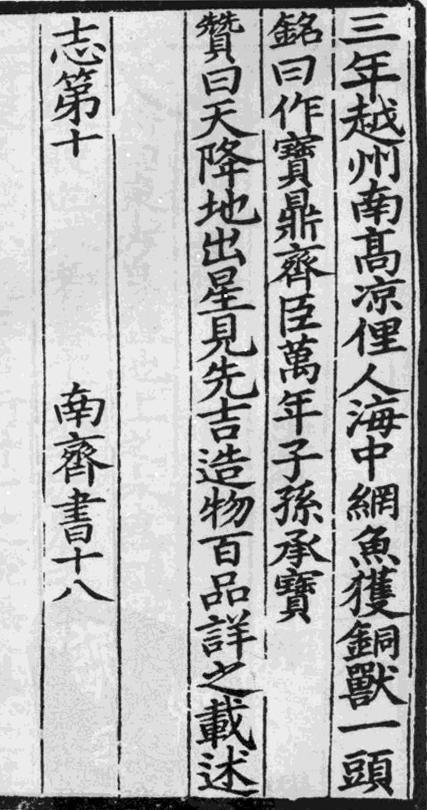 三年越州南高凉俚人海中網魚獲銅獸一頭
銘曰作寶鼎齊臣萬年子孫承寶
贊曰天降地出星見先吉造物百品詳之載述
志第十 南齊書十八